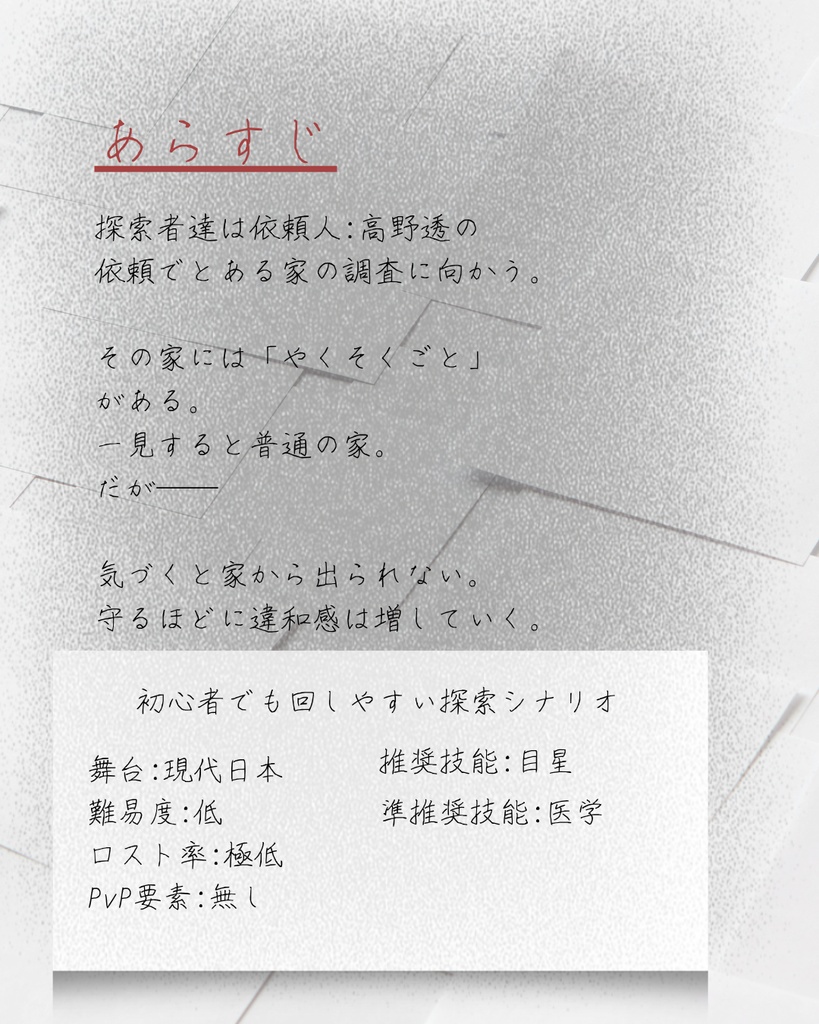 あらすじ
探索者達は依頼人:高野透の
依頼でとある家の調査に向かう。
その家には「やくそくごと」
がある。
一見すると普通の家。
だが――
気づくと家から出られない。
守るほどに違和感は増していく。
初心者でも回しやすい探索シナリオ
舞台:現代日本
難易度:低
ロスト率:極低
PvP要素:無し
推奨技能:目星
準推奨技能:医学